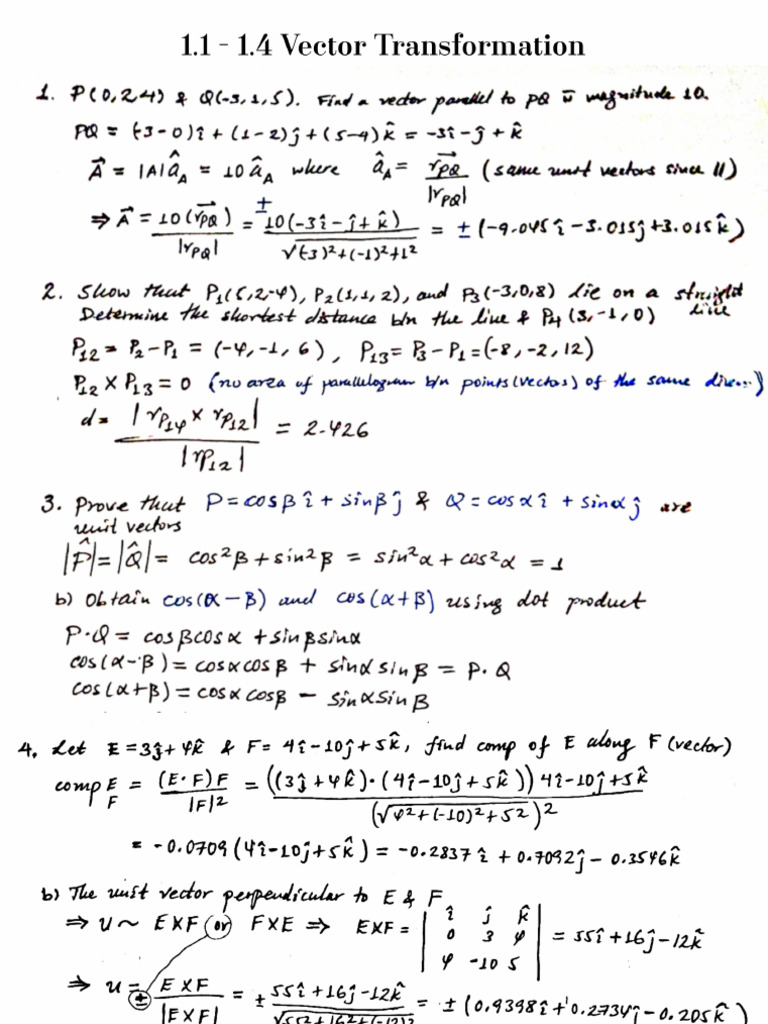 1.1 - 1.4 Vector Transformation
1. P(0,2,4) & Q(-3,1,5). Find a vector parallel to PQ w̄ magnitude 10.
PQ = (-3-0)î + (1-2)ĵ + (5-4)k̂ = -3î - ĵ + k̂
A⃗ = |A|â_A = 10 â_A where â_A = r⃗_PQ / |r_PQ| (same unit vectors since ||)
⇒ A⃗ = 10(r⃗_PQ) / |r_PQ| = ±10(-3î - ĵ + k̂) / √((-3)²+(-1)²+1²) = ±(-9.045î - 3.015ĵ + 3.015k̂)
2. Show that P₁(5,2,-4), P₂(1,1,2), and P₃(-3,0,8) lie on a straight line
Determine the shortest distance b/n the line & P₄(3,-1,0)
P₁₂ = P₂-P₁ = (-4,-1,6), P₁₃ = P₃-P₁ = (-8,-2,12)
P₁₂ X P₁₃ = 0 (no area of parallelogram b/n points (vectos) of the same dire...)
d = |r_P₁₄ x r_P₁₂| / |r_P₁₂| = 2.426
3. Prove that P = cosβî + sinβĵ & Q = cosαî + sinαĵ are
unit vectors
|P̂| = |Q̂| = cos²β + sin²β = sin²α + cos²α = 1
b) Obtain cos(α-β) and cos(α+β) using dot product
P·Q = cosβcosα + sinβsinα
cos(α-β) = cosαcosβ + sinαsinβ = P·Q
cos(α+β) = cosαcosβ - sinαsinβ
4. Let E = 3ĵ + 4k̂ & F = 4î - 10ĵ + 5k̂, find comp of E along F (vector)
comp E F = (E·F)F / |F|² = ((3ĵ + 4k̂)·(4î - 10ĵ + 5k̂)) 4î - 10ĵ + 5k̂ / (√(4²+(-10)²+5²))²
= -0.0709(4î - 10ĵ + 5k̂) = -0.2837î + 0.7092ĵ - 0.3546k̂
b) The unit vector perpendicular to E & F
⇒ u ~ EXF (or) FXE ⇒ EXF = | î ĵ k̂ |
| 0 3 4 | = 55î + 16ĵ - 12k̂
| 4 -10 5 |
⇒ u = ± EXF / |EXF| = ± 55î + 16ĵ - 12k̂ / √(55²+16²+(-12)²) = ±(0.9398î + 0.2734ĵ - 0.205k̂)